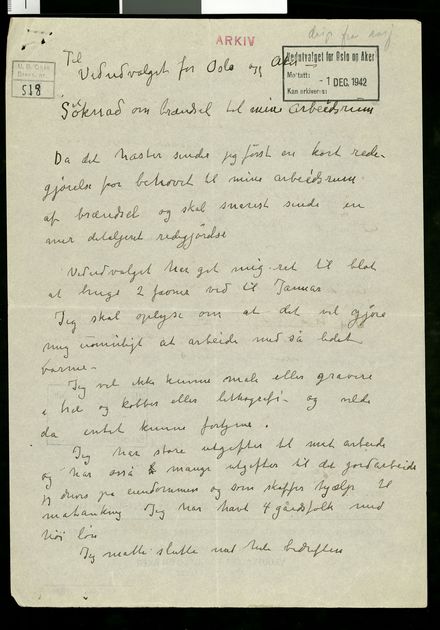 ARKIV
Til
Vedudvalget for Oslo og Aker
U. B. Oslo
Brevs. nr.
518
Vedutvalget for Oslo og Aker
Mottatt:
-1 DEC. 1942
Kan arkiveres:
Söknad om brændsel til mine arbeidsrum
Da det haster sender jeg först en kort rede-
gjörelse for behovet til mine arbeidsrum
af brændsel og skal snarest sende en
mer detaljeret redegjördse
Vedudvalget har get mig ret til blot
at bruge 2 favne ved til Januar
Jeg skal oplyse om at det vil gjöre
mig umuligt at arbeide med så lidet
varme.
Jeg vil ikke kunne male eller gravere
i træ og kobber eller lithografi - og vilde
da intet kunne fortjene.
Jeg har store utgefter til mit arbeide
og har også mange utgefter til det jordarbeide
drives på eiendommen og som skaffer hjælp til
matauking Jeg har havt 4 gårdsfolk med
höi lön
Jeg måtte slutte med hele bedriften